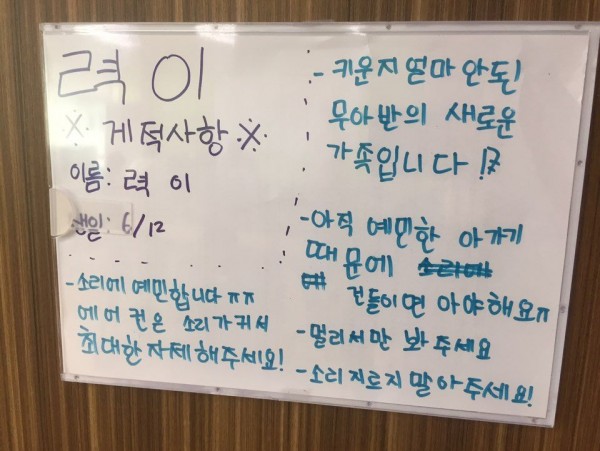 력 이
※ 게적사항 ※
이름: 력 이
생일: 6/12
- 소리에 예민합니다 ㅠㅠ
에어컨은 소리가 커서
최대한 자제해주세요!
- 키운지 얼마 안된
무아반의 새로운
가족입니다!
- 아직 예민한 아가기
때문에
건들이면 아야해요ㅠ
- 멀리서만 봐 주세요
- 소리지르지 말아주세요!